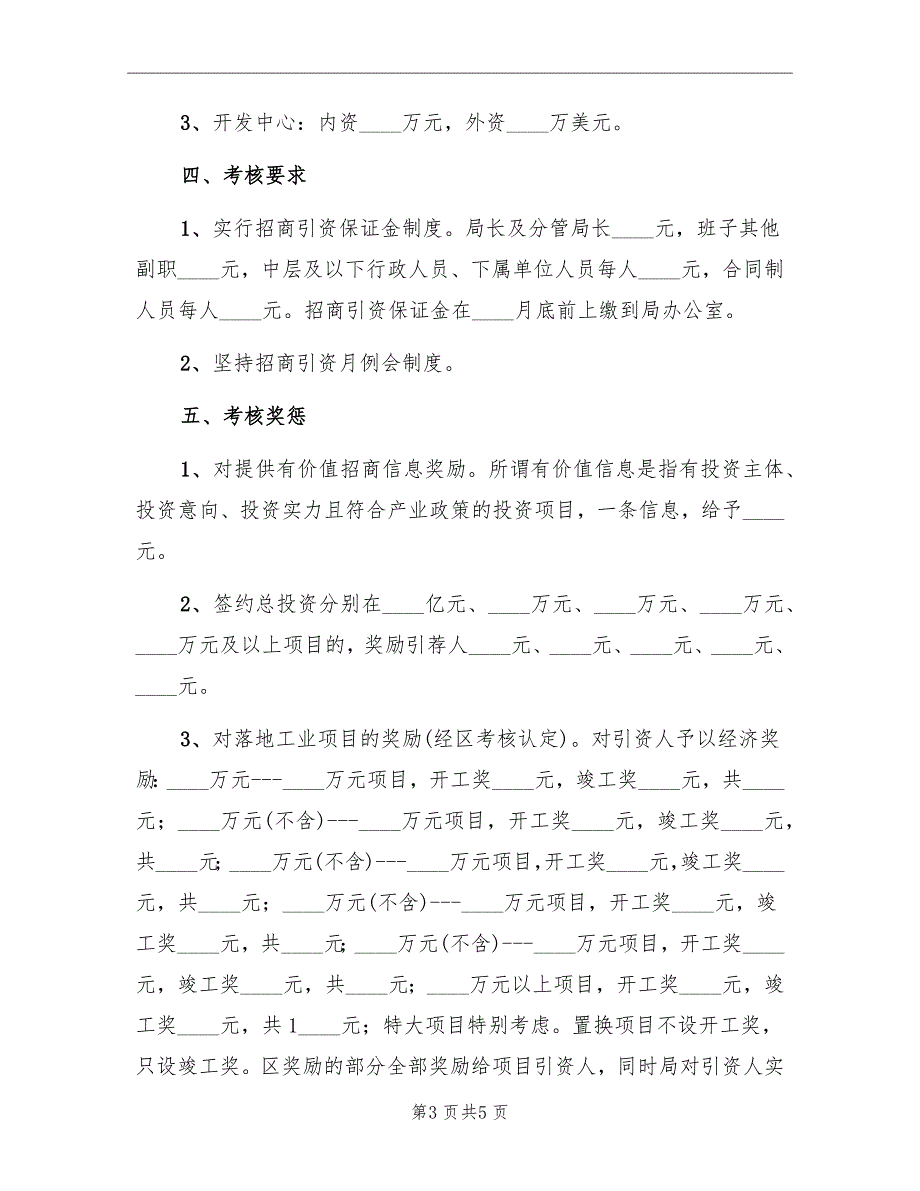 3、开发中心：内资____万元，外资____万美元。
四、考核要求
1、实行招商引资保证金制度。局长及分管局长____元，班子其他
副职____元，中层及以下行政人员、下属单位人员每人____元，合同制
人员每人____元。招商引资保证金在____月底前上缴到局办公室。
2、坚持招商引资月例会制度。
五、考核奖惩
1、对提供有价值招商信息奖励。所谓有价值信息是指有投资主体、
投资意向、投资实力且符合产业政策的投资项目，一条信息，给予____
元。
2、签约总投资分别在____亿元、____万元、____万元、____万元、
____万元及以上项目的，奖励引荐人____元、____元、____元、____元、
____元。
3、对落地工业项目的奖励(经区考核认定)。对引资人予以经济奖
励：____万元---____万元项目，开工奖____元，竣工奖____元，共____
元；____万元(不含)---____万元项目，开工奖____元，竣工奖____元，
共____元；____万元(不含)---____万元项目，开工奖____元，竣工奖____
元，共____元；____万元(不含)---____万元项目，开工奖____元，竣
工奖____元，共____元；____万元(不含)---____万元项目，开工奖____
元，竣工奖____元，共____元；____万元以上项目，开工奖____元，竣
工奖____元，共1____元；特大项目特别考虑。置换项目不设开工奖，
只设竣工奖。区奖励的部分全部奖励给项目引资人，同时局对引资人实
第3页共5页